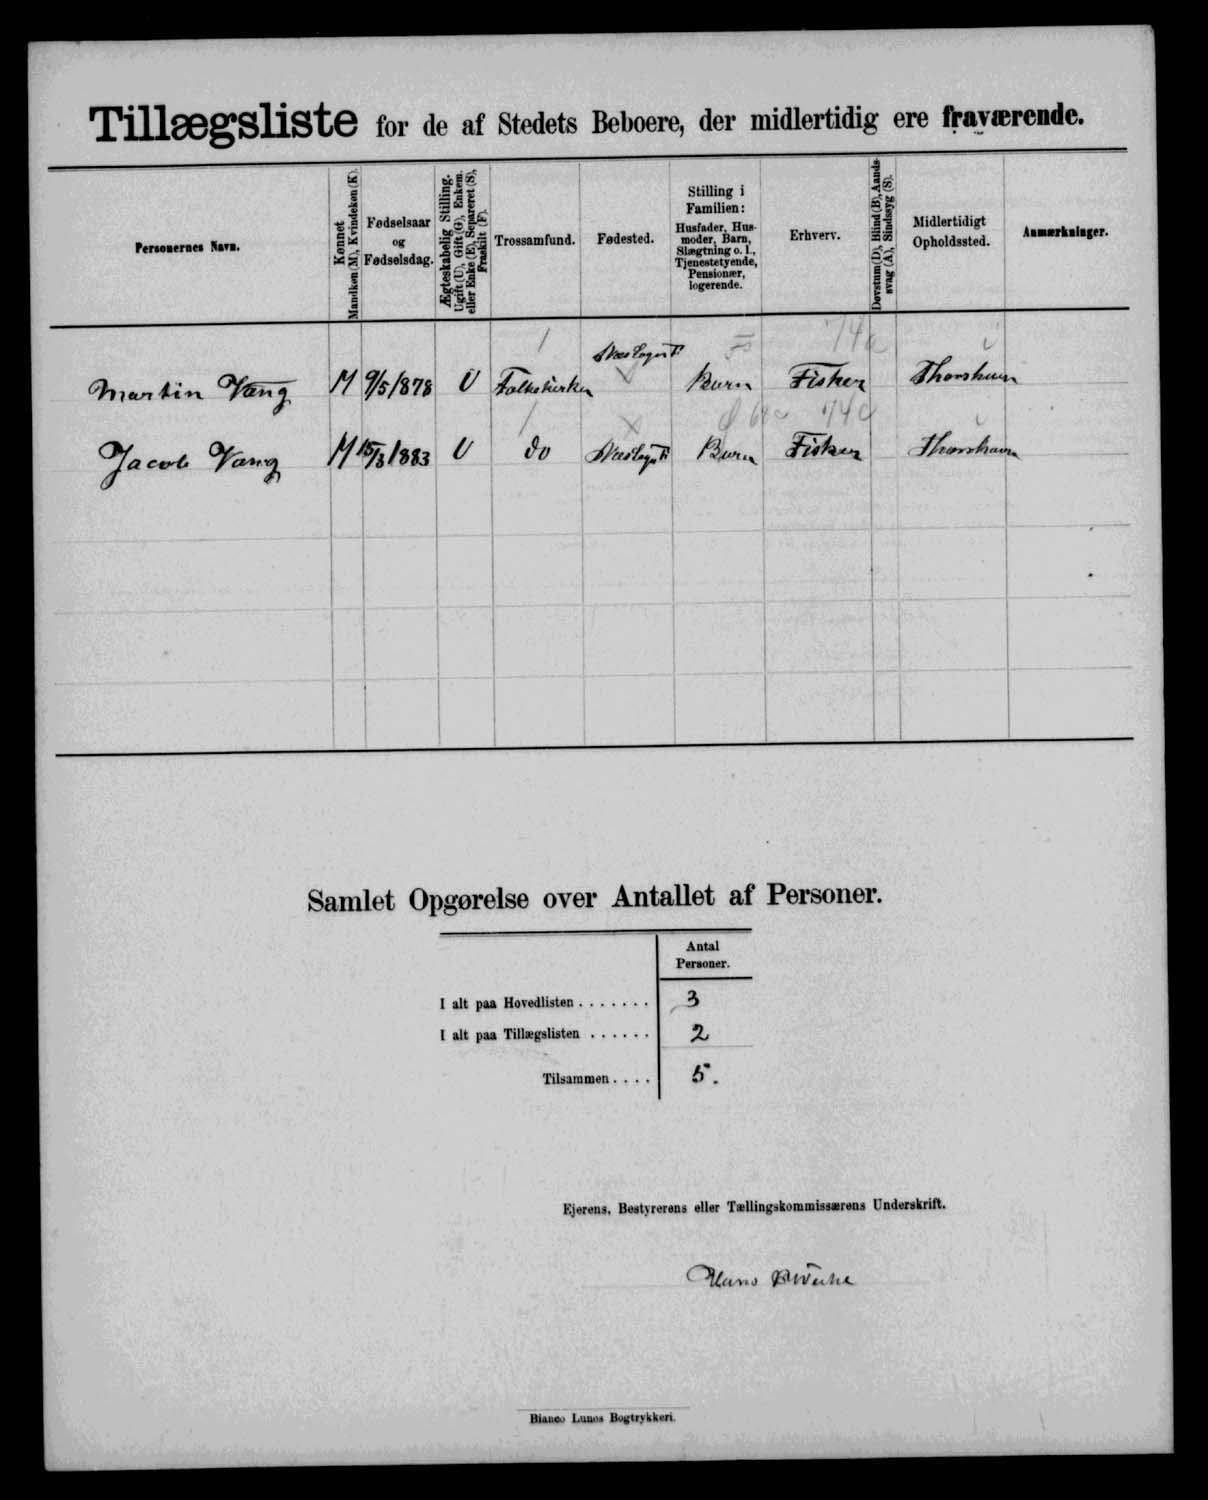 Tillægsliste for de af Stedets Beboere, der midlertidig ere fraværende.
Personernes Navn.
Kønnet
Mandkøn (M), Kvindekøn (K).
Fødselsaar
og
Fødselsdag.
Ægteskabelig Stilling.
Ugift (U), Gift (G), Enkem.
eller Enke (E), Separeret (S),
Fraskilt (F).
Trossamfund.
Fødested.
Stilling i
Familien:
Husfader, Hus-
moder, Barn,
Slægtning o. l.,
Tjenestetyende,
Pensionær,
logerende.
Erhverv.
Døvstum (D), Blind (B), Aands-
svag (A), Sindssyg (S).
Midlertidigt
Opholdssted.
Anmærkninger.
74a
Martin Vang M 9/5/1878 U Folkekirken Barn Fisker Thorshavn
64a 74a
Jacob Vang M 15/3/1883 U do Barn Fisker Thorshavn
Samlet Opgørelse over Antallet af Personer.
Antal
Personer.
I alt paa Hovedlisten . . . . . . . 3
I alt paa Tillægslisten . . . . . . 2
Tilsammen . . . . 5.
Ejerens, Bestyrerens eller Tællingskommissærens Underskrift.
Hans
Bianco Lunos Bogtrykkeri.